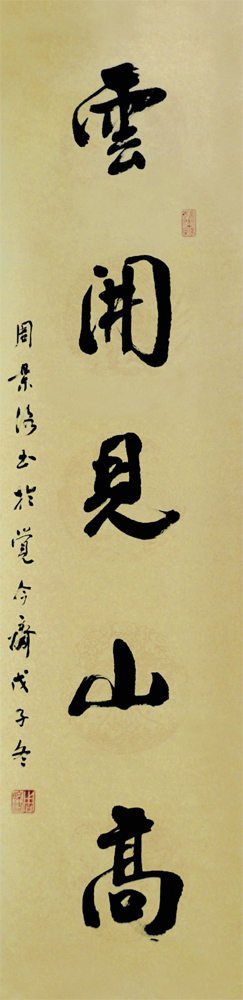 雲開見山高
周景洛书於覺今齋戊子冬